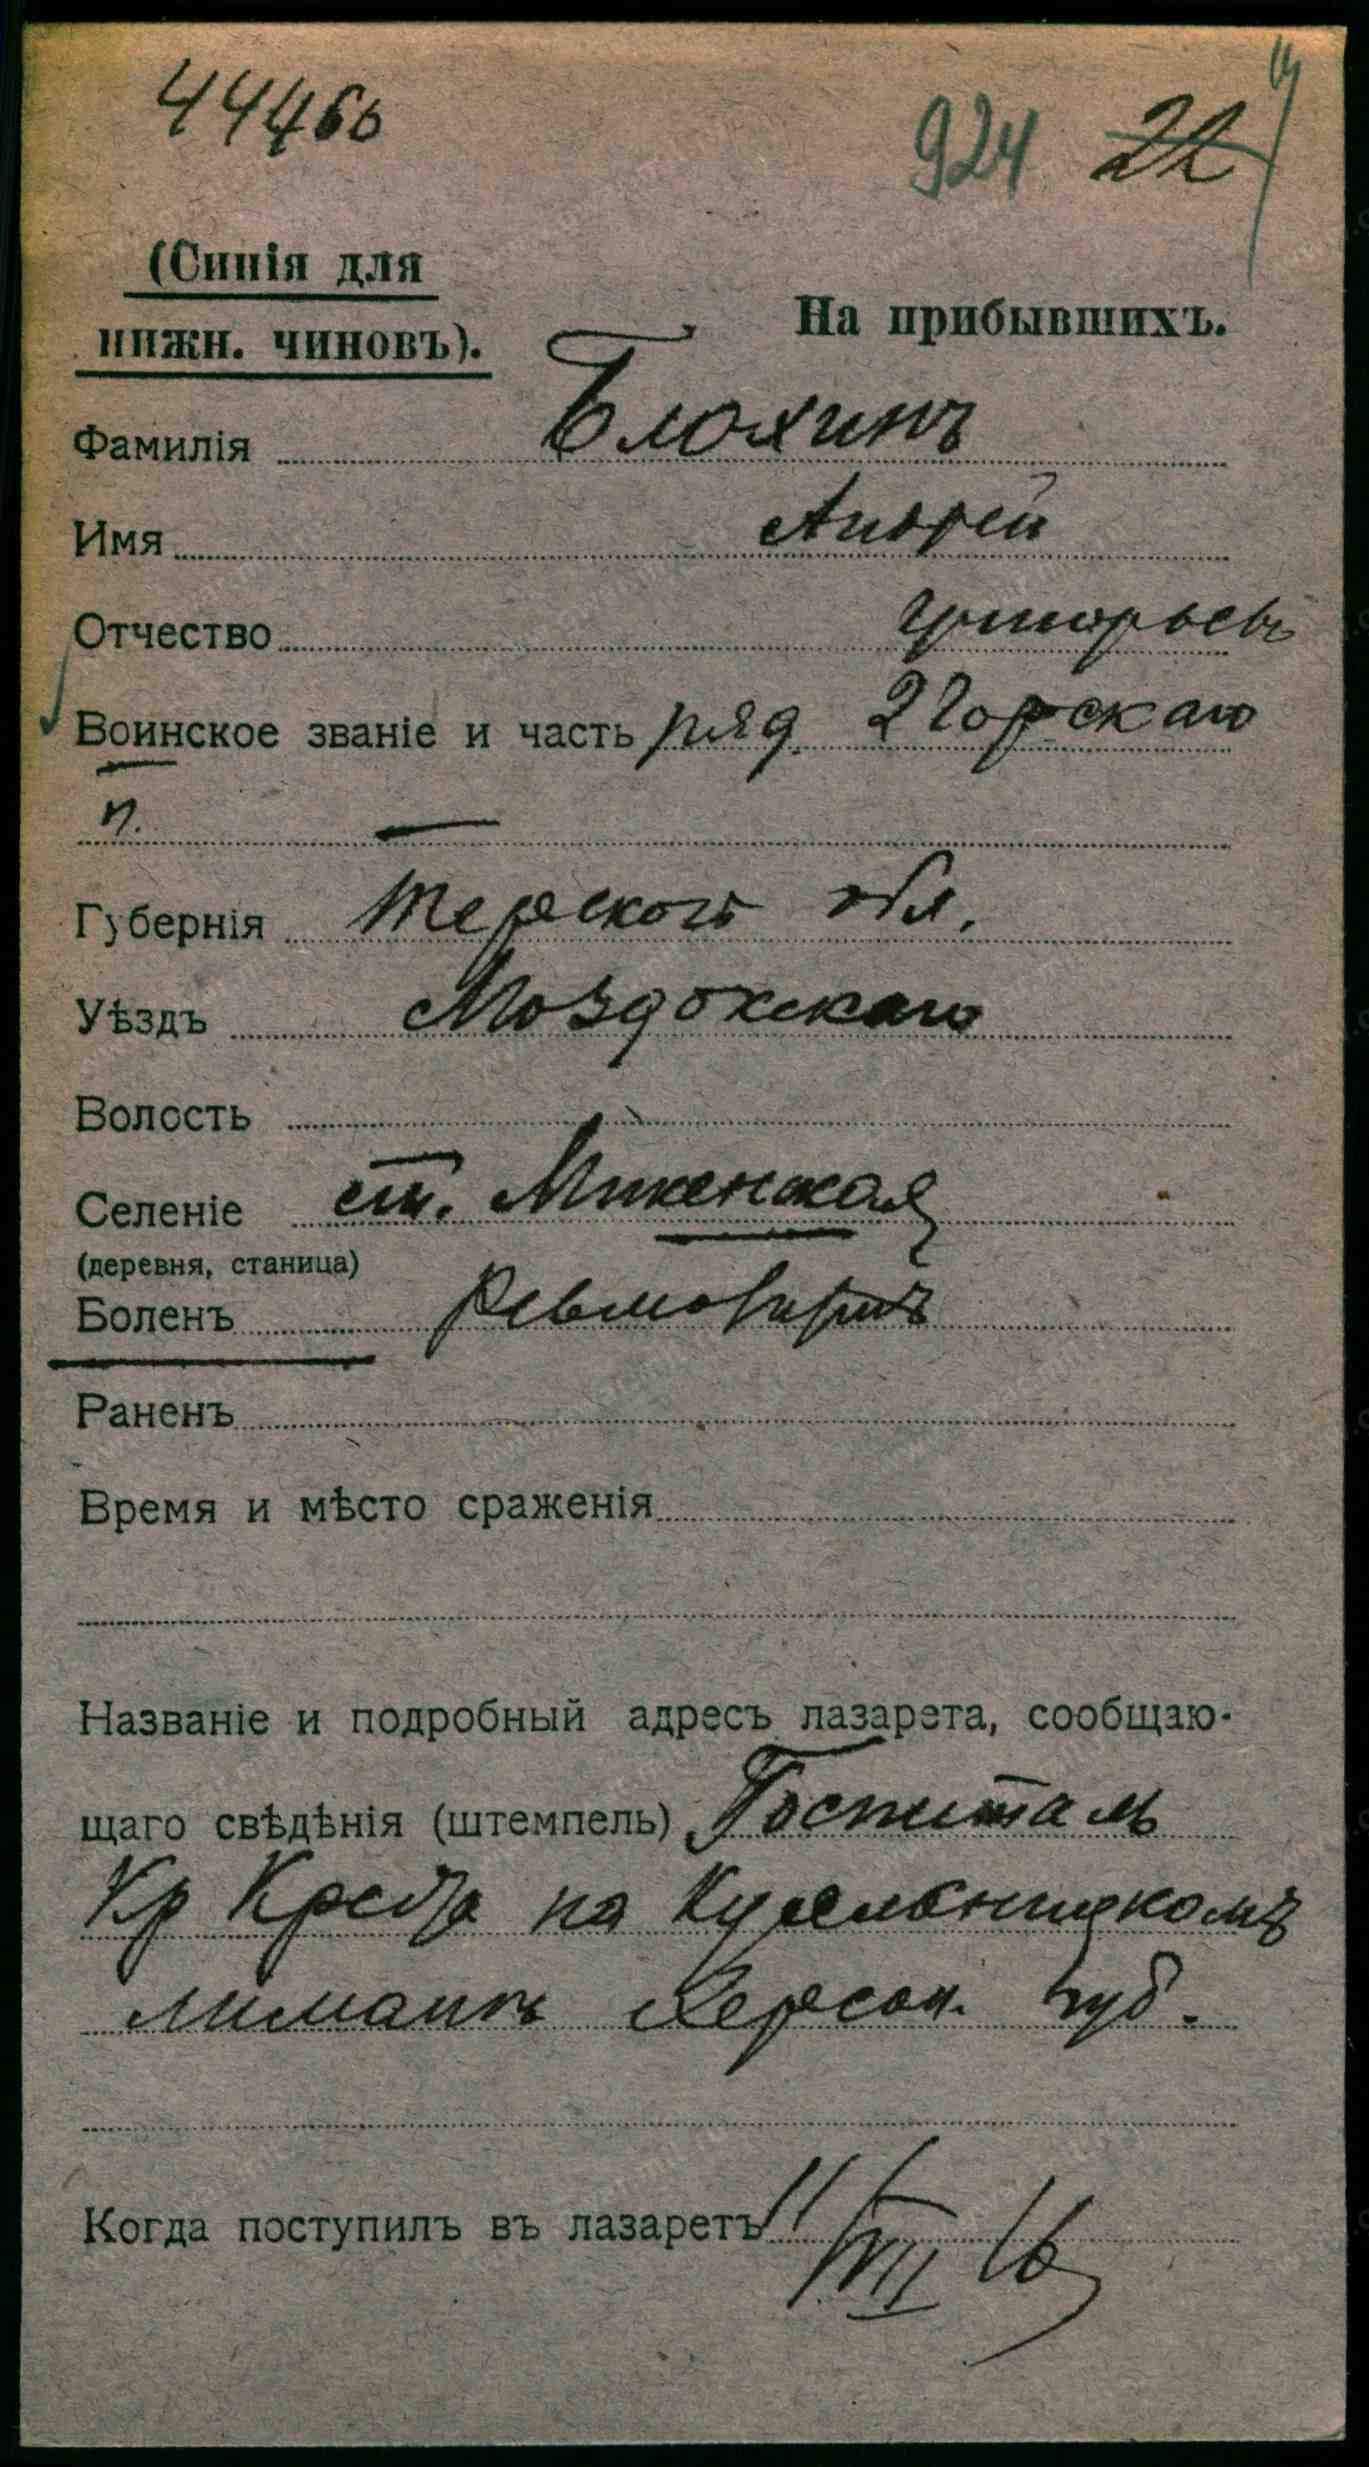 44466
924 22
(Синія для
нижн. чиновъ).
На прибывшихъ.
Фамилія Блохинъ
Имя Андрей
Отчество Григорьевъ
Воинское званіе и часть ряд. 2 Горскаго
п. —
Губернія Терской обл.
Уѣздъ Моздокскаго
Волость
Селеніе ст. Микенская
(деревня, станица)
Боленъ
Раненъ
Время и мѣсто сраженія
Названіе и подробный адресъ лазарета, сообщаю-
щаго свѣдѣнія (штемпель) Госпиталь
Кр Креста на Куяльницкомъ
лиманѣ Херсон. губ.
Когда поступилъ въ лазаретъ 11/VIII 16